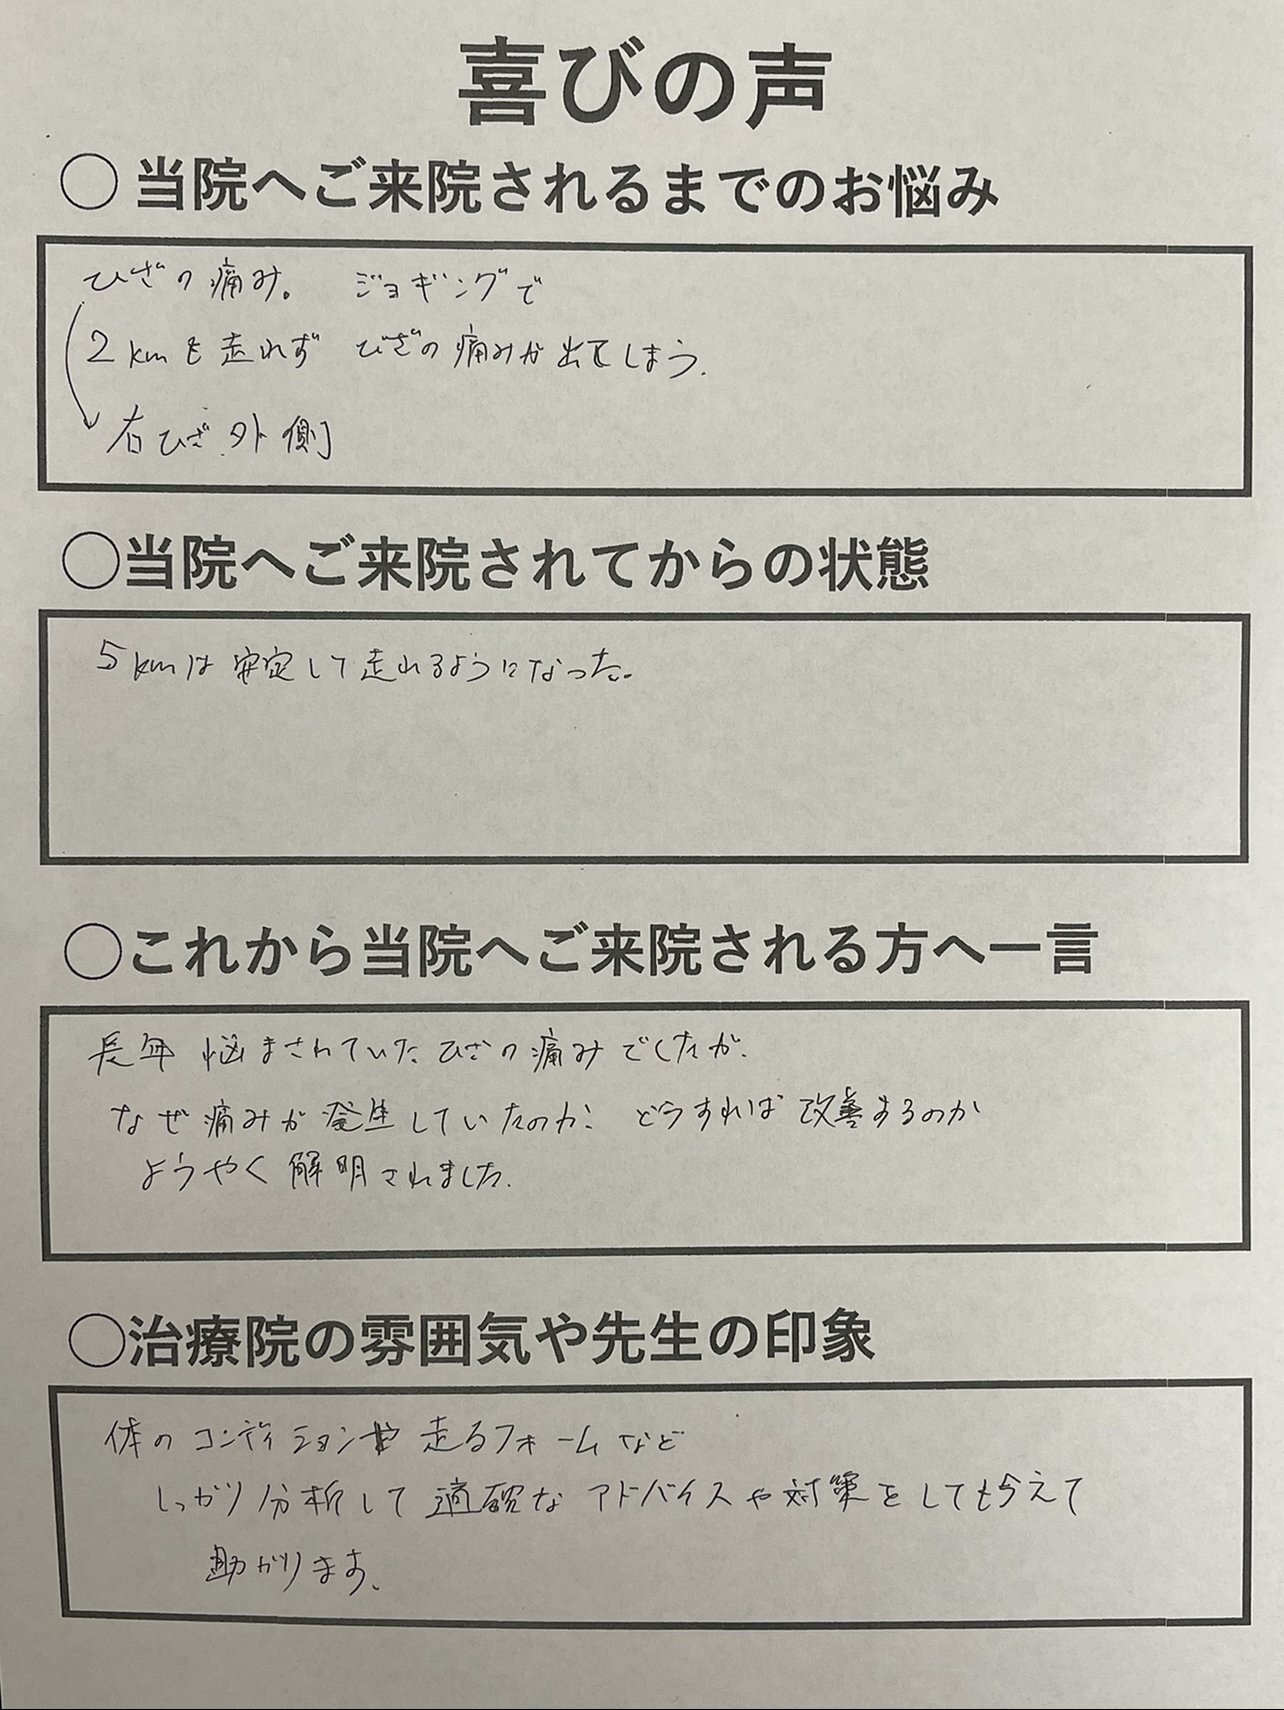 喜びの声
○ 当院へご来院されるまでのお悩み
ひざの痛み。 ジョギングで
2kmも走れず ひざの痛みが出てしまう.
右ひざ外側
○当院へご来院されてからの状態
5kmは安定して走れるようになった。
○これから当院へご来院される方へ一言
長年 悩まされていたひざの痛みでしたが、
なぜ痛みが発生していたのか、どうすれば改善するのか
ようやく解明されました.
○治療院の雰囲気や先生の印象
体のコンディションや 走るフォームなど
しっかり分析して適確なアドバイスや対策をしてもらえて
助かります、